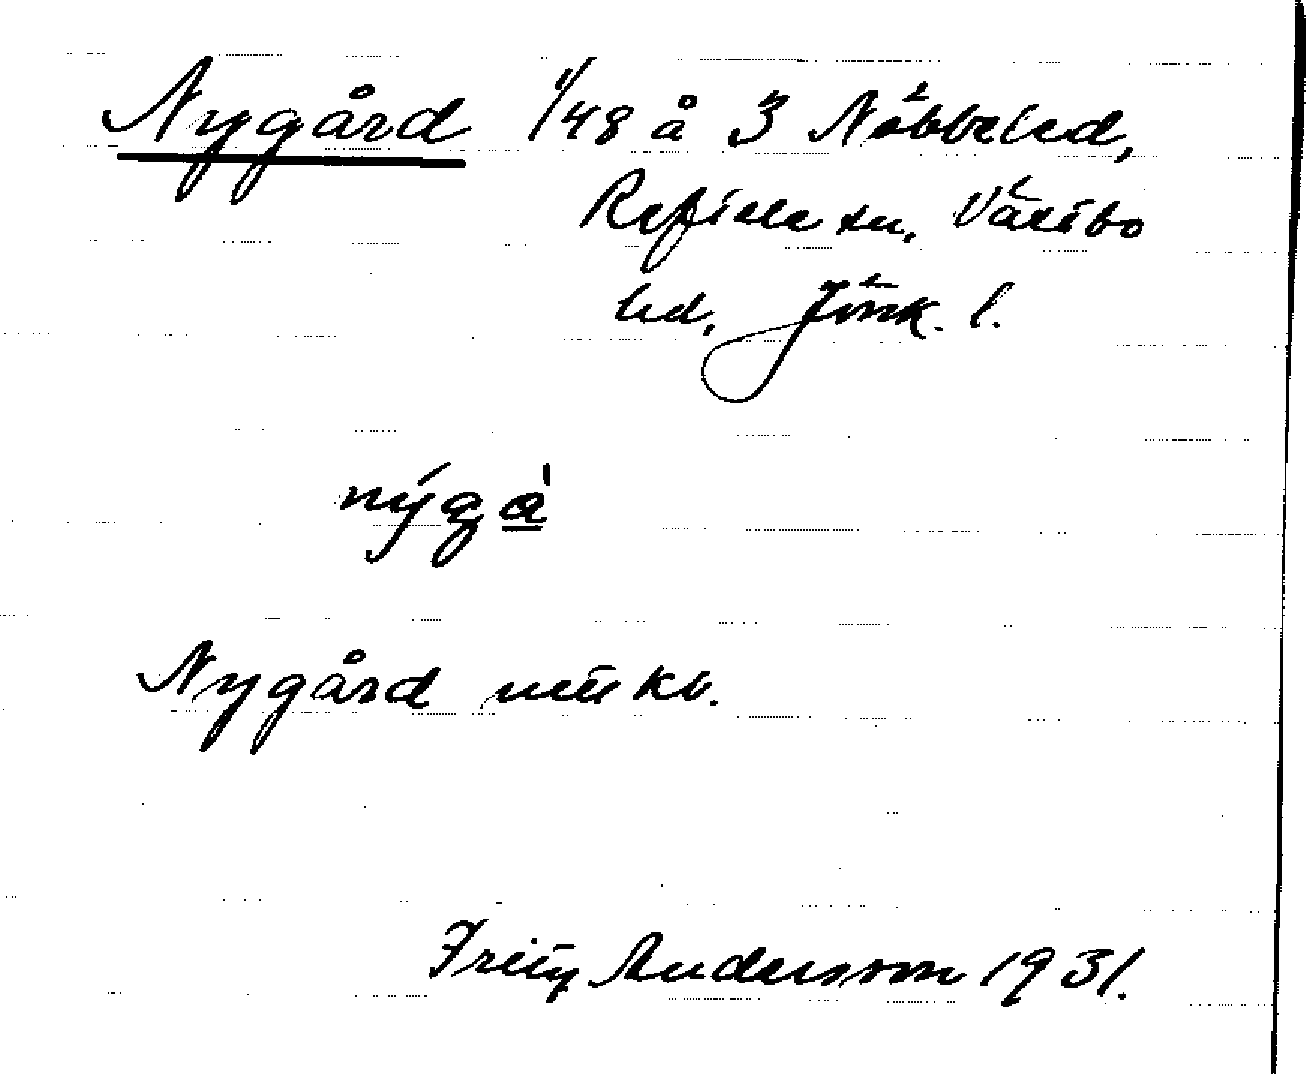 Nygård 1/48 å 3 Nöbbeled,
Reftele sn, Västbo
hd, Jönk. l.
nýgà
Nygård
Fritz Andersson 1931.